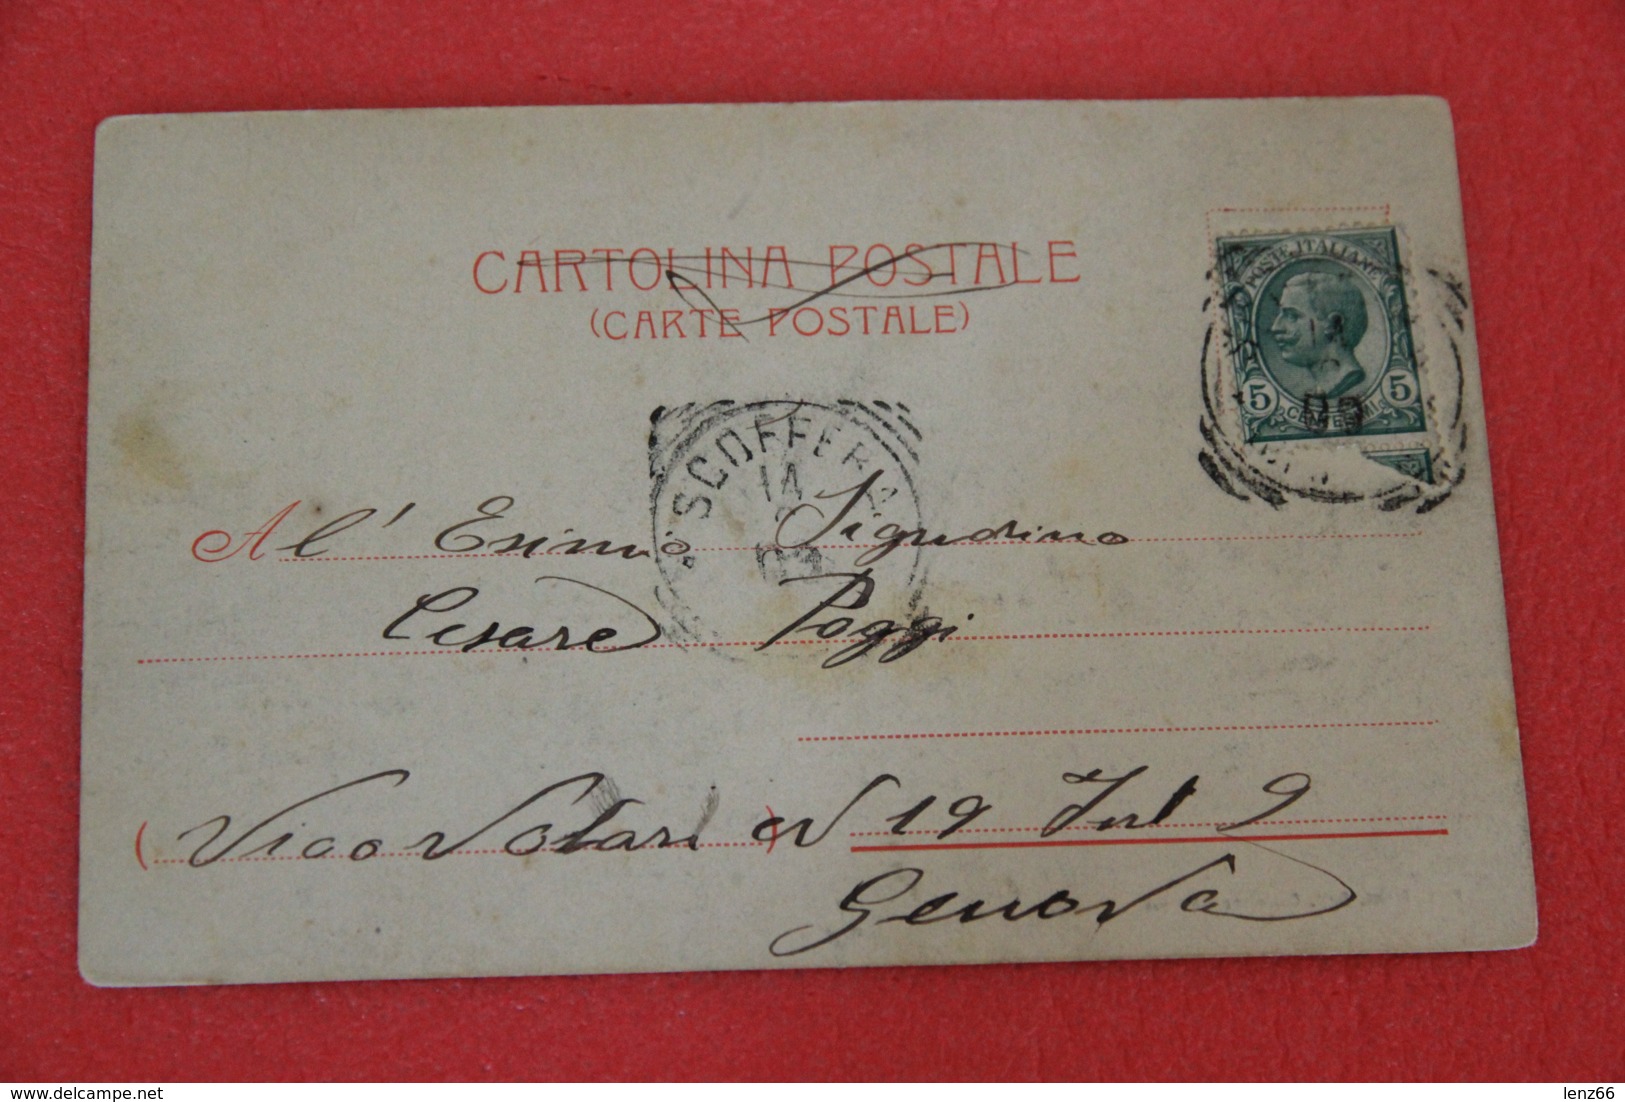 CARTOLINA POSTALE
(CARTE POSTALE)
POSTE ITALIANE
5 5
SCOFFERA
14
Al' Esimio Signorino
Cesare Poggi
Vico Notari N 19 Int 9
Genova
delcampe.net
lenz66